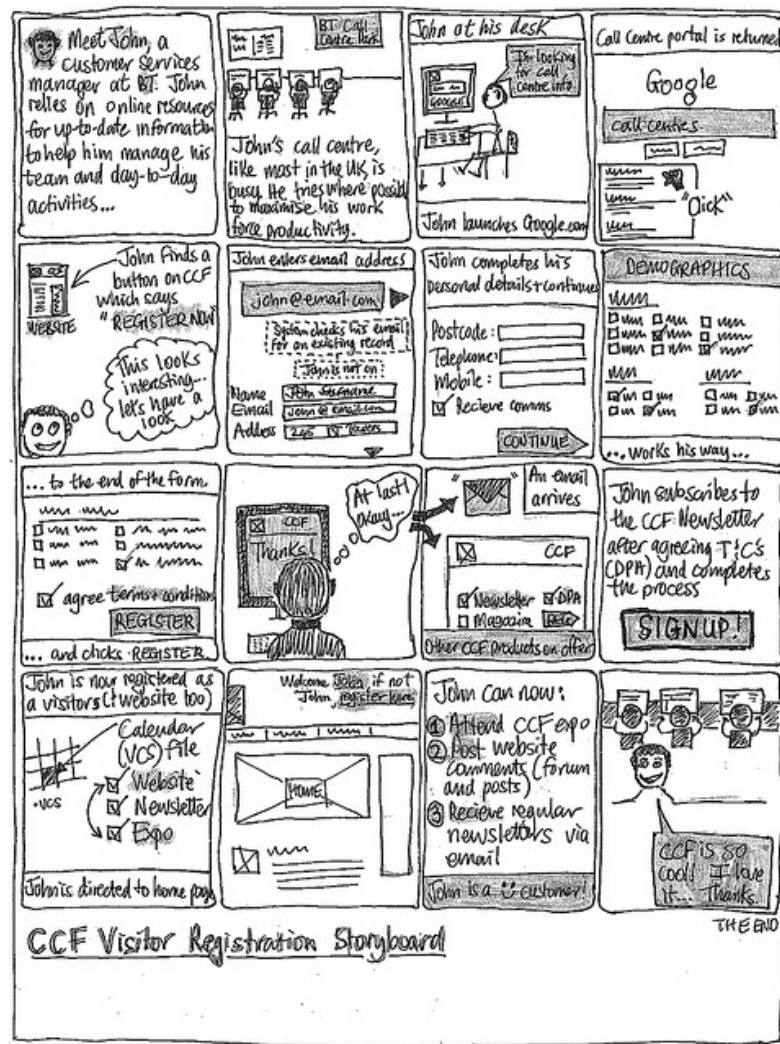 Meet John, a
customer services
manager at BT. John
relies on online resources
for up-to-date information
to help him manage his
team and day-to-day
activities...
BT Call
Centre Park
John's call centre,
like most in the UK, is
busy. He tries where possible
to maximise his work
force productivity.
John at his desk
I'm looking
for call
centre info
GOOGLE
John launches Google.com
Call Centre portal is returned
Google
call centres
"Click"
John finds a
button on CCF
which says
"REGISTER NOW"
WEBSITE
This looks
interesting...
let's have a
look
John enters email address
john@email.com
System checks his email
for an existing record
John is not on
Name John Surname
Email john@email.com
Address 245 Towers
John completes his
personal details + continues
Postcode:
Telephone:
Mobile:
Recieve comms
CONTINUE
DEMOGRAPHICS
...works his way...
... to the end of the form.
agree terms + conditions
REGISTER
... and clicks REGISTER
CCF
Thanks!
At last!
okay...
An email
arrives
CCF
Newsletter DPA
Magazine
Other CCF products on offer
John subscribes to
the CCF: Newsletter
after agreeing T&C's
(DPA) and completes
the process
SIGN UP!
John is now registered as
a visitors (+ website too)
Calendar
(VCS) file
.vcs
Website
Newsletter
Expo
John is directed to home page
Welcome John if not
John, register here
HOME
John can now:
1 Attend CCF expo
2 Post website
comments (forum
and posts)
3 Recieve regular
newsletters via
email
John is a customer!
CCF is so
cool! I love
it... Thanks.
THE END
CCF Visitor Registration Storyboard